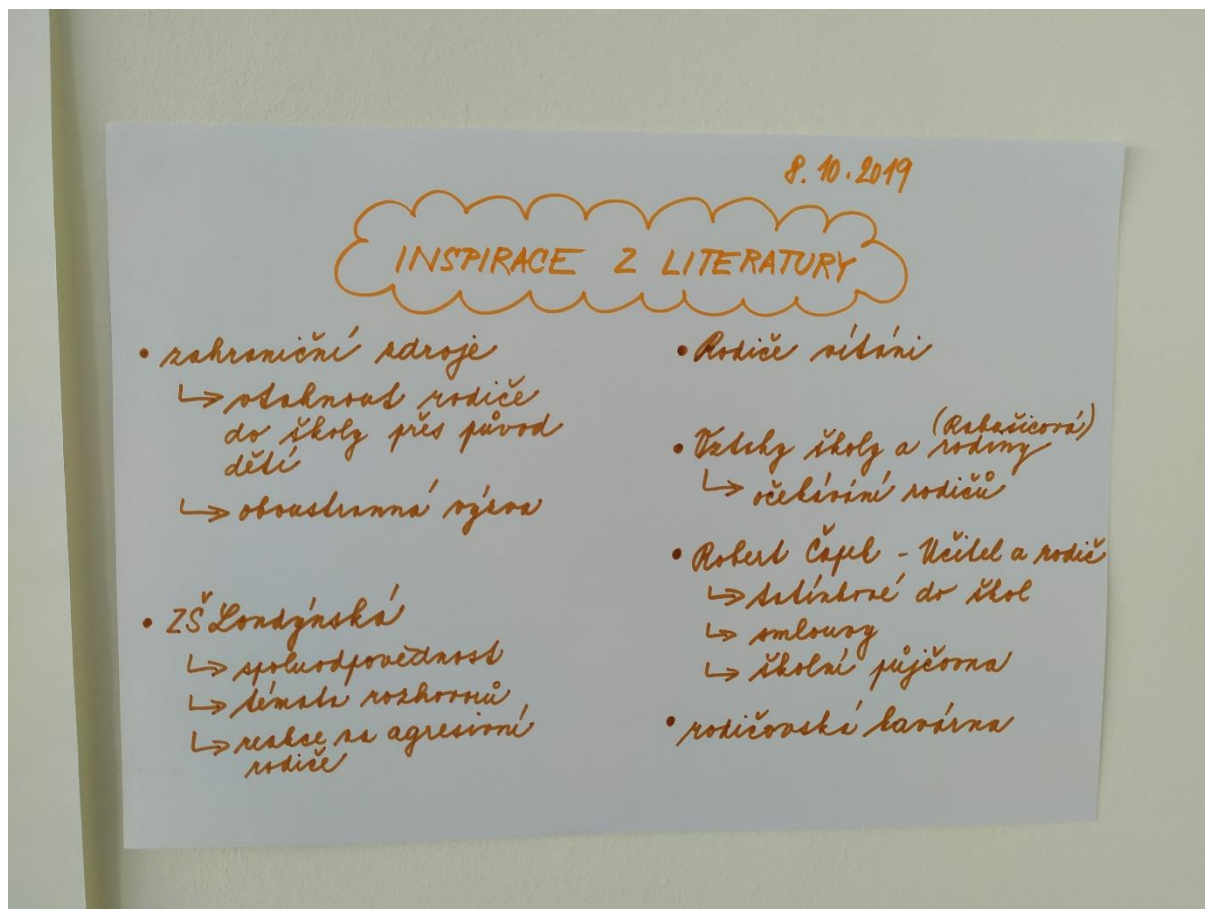 8. 10. 2019
INSPIRACE Z LITERATURY
• zahraniční zdroje
↳ vtáhnout rodiče
do školy přes původ
dětí
↳ oboustranná výzva
• ZŠ Londýnská
↳ spoluodpovědnost
↳ témata rozhovorů
↳ reakce na agresivní
rodiče
• Rodiče vítáni
• Vztahy školy a rodiny (Rabušicová)
↳ očekávání rodičů
• Robert Čapek - Učitel a rodič
↳ tatínkové do škol
↳ smlouvy
↳ školní půjčovna
• rodičovská kavárna